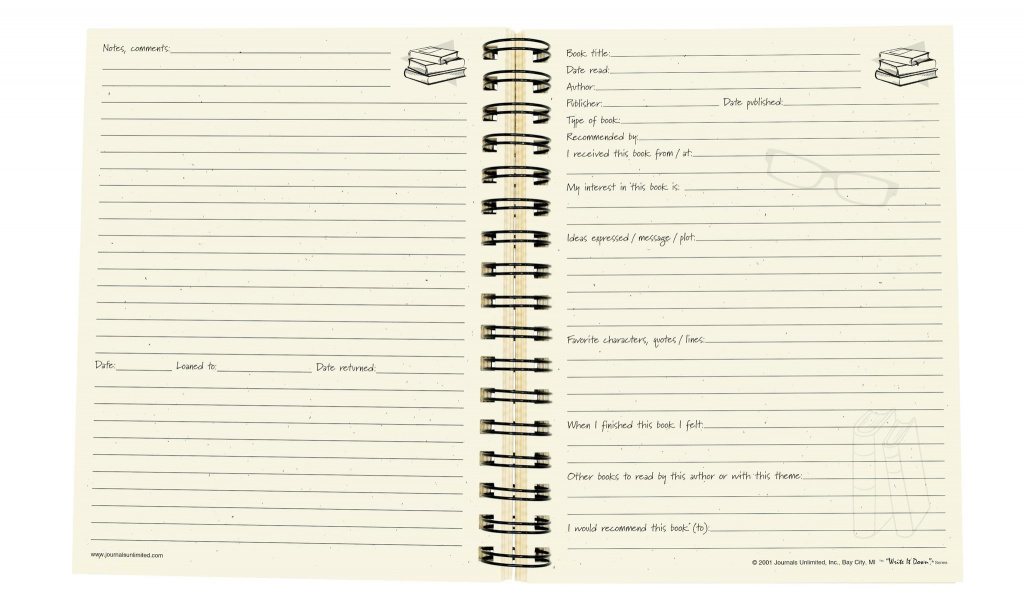 Notes, comments:
Date: Loaned to: Date returned:
www.journalsunlimited.com
Book title:
Date read:
Author:
Publisher: Date published:
Type of book:
Recommended by:
I received this book from / at:
My interest in this book is:
Ideas expressed / message / plot:
Favorite characters, quotes / lines:
When I finished this book I felt:
Other books to read by this author or with this theme:
I would recommend this book (to):
© 2001 Journals Unlimited, Inc., Bay City, MI ™ "Write It Down"® Series